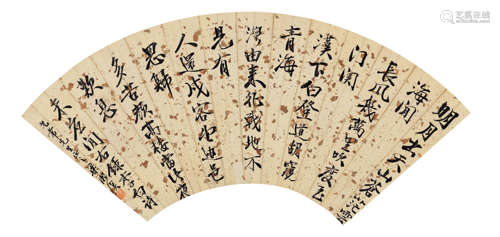 明月出天山蒼茫雲
海間
長風幾萬里吹度玉
門關
漢下白登道胡窺
青海
灣由來征戰地不
見有
人還戍客望邊邑
思歸
多苦顏高樓當此夜
歎息
未應閒右錄李白詩